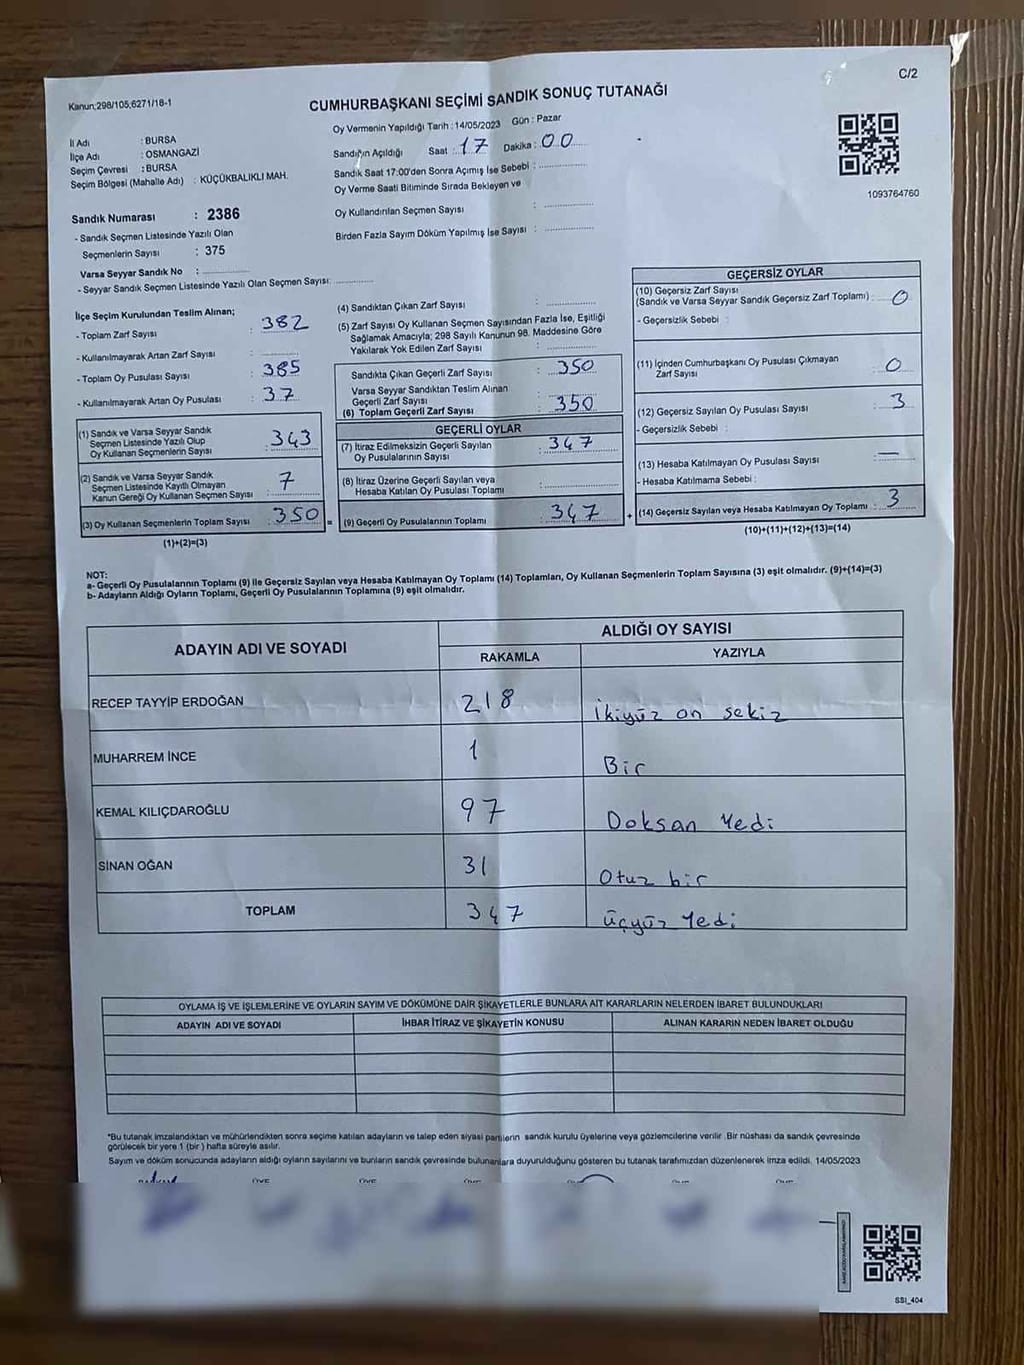 C/2
Kanun;298/105;6271/18-1
CUMHURBAŞKANI SEÇİMİ SANDIK SONUÇ TUTANAĞI
İl Adı : BURSA
İlçe Adı : OSMANGAZİ
Seçim Çevresi : BURSA
Seçim Bölgesi (Mahalle Adı) : KÜÇÜKBALIKLI MAH.
Sandık Numarası : 2386
- Sandık Seçmen Listesinde Yazılı Olan
Seçmenlerin Sayısı : 375
Varsa Seyyar Sandık No :
- Seyyar Sandık Seçmen Listesinde Yazılı Olan Seçmen Sayısı:
Oy Vermenin Yapıldığı Tarih : 14/05/2023 Gün : Pazar
Sandığın Açıldığı Saat : 17 Dakika : 00
Sandık Saat 17:00'den Sonra Açımış İse Sebebi :
Oy Verme Saati Bitiminde Sırada Bekleyen ve
Oy Kullandırılan Seçmen Sayısı :
Birden Fazla Sayım Döküm Yapılmış İse Sayısı :
1093764760
İlçe Seçim Kurulundan Teslim Alınan;
- Toplam Zarf Sayısı : 382
- Kullanılmayarak Artan Zarf Sayısı :
- Toplam Oy Pusulası Sayısı : 385
- Kullanılmayarak Artan Oy Pusulası : 37
(1) Sandık ve Varsa Seyyar Sandık
Seçmen Listesinde Yazılı Olup
Oy Kullanan Seçmenlerin Sayısı : 343
(2) Sandık ve Varsa Seyyar Sandık
Seçmen Listesinde Kayıtlı Olmayan
Kanun Gereği Oy Kullanan Seçmen Sayısı : 7
(3) Oy Kullanan Seçmenlerin Toplam Sayısı : 350
(1)+(2)=(3)
(4) Sandıktan Çıkan Zarf Sayısı :
(5) Zarf Sayısı Oy Kullanan Seçmen Sayısından Fazla İse, Eşitliği
Sağlamak Amacıyla; 298 Sayılı Kanunun 98. Maddesine Göre
Yakılarak Yok Edilen Zarf Sayısı :
Sandıkta Çıkan Geçerli Zarf Sayısı : 350
Varsa Seyyar Sandıktan Teslim Alınan
Geçerli Zarf Sayısı :
(6) Toplam Geçerli Zarf Sayısı : 350
GEÇERLİ OYLAR
(7) İtiraz Edilmeksizin Geçerli Sayılan : 347
Oy Pusulalarının Sayısı
(8) İtiraz Üzerine Geçerli Sayılan veya
Hesaba Katılan Oy Pusulası Toplamı :
= (9) Geçerli Oy Pusulalarının Toplamı : 347 +
GEÇERSİZ OYLAR
(10) Geçersiz Zarf Sayısı
(Sandık ve Varsa Seyyar Sandık Geçersiz Zarf Toplamı) : 0
- Geçersizlik Sebebi :
(11) İçinden Cumhurbaşkanı Oy Pusulası Çıkmayan
Zarf Sayısı : 0
(12) Geçersiz Sayılan Oy Pusulası Sayısı : 3
- Geçersizlik Sebebi :
(13) Hesaba Katılmayan Oy Pusulası Sayısı : —
- Hesaba Katılmama Sebebi :
(14) Geçersiz Sayılan veya Hesaba Katılmayan Oy Toplamı : 3
(10)+(11)+(12)+(13)=(14)
NOT:
a- Geçerli Oy Pusulalarının Toplamı (9) ile Geçersiz Sayılan veya Hesaba Katılmayan Oy Toplamı (14) Toplamları, Oy Kullanan Seçmenlerin Toplam Sayısına (3) eşit olmalıdır. (9)+(14)=(3)
b- Adayların Aldığı Oyların Toplamı, Geçerli Oy Pusulalarının Toplamına (9) eşit olmalıdır.
ADAYIN ADI VE SOYADI
ALDIĞI OY SAYISI
RAKAMLA YAZIYLA
RECEP TAYYİP ERDOĞAN 218 İkiyüz on sekiz
MUHARREM İNCE 1 Bir
KEMAL KILIÇDAROĞLU 97 Doksan Yedi
SİNAN OĞAN 31 Otuz bir
TOPLAM 347 üçyüz Yedi
OYLAMA İŞ VE İŞLEMLERİNE VE OYLARIN SAYIM VE DÖKÜMÜNE DAİR ŞİKAYETLERLE BUNLARA AİT KARARLARIN NELERDEN İBARET BULUNDUKLARI
ADAYIN ADI VE SOYADI İHBAR İTİRAZ VE ŞİKAYETİN KONUSU ALINAN KARARIN NEDEN İBARET OLDUĞU
*Bu tutanak imzalandıktan ve mühürlendikten sonra seçime katılan adayların ve talep eden siyasi partilerin sandık kurulu üyelerine veya gözlemcilerine verilir. Bir nüshası da sandık çevresinde
görülecek bir yere 1 (bir) hafta süreyle asılır.
Sayım ve döküm sonucunda adayların aldığı oyların sayılarını ve bunların sandık çevresinde bulunanlara duyurulduğunu gösteren bu tutanak tarafımızdan düzenlenerek imza edildi. 14/05/2023
SSI_404